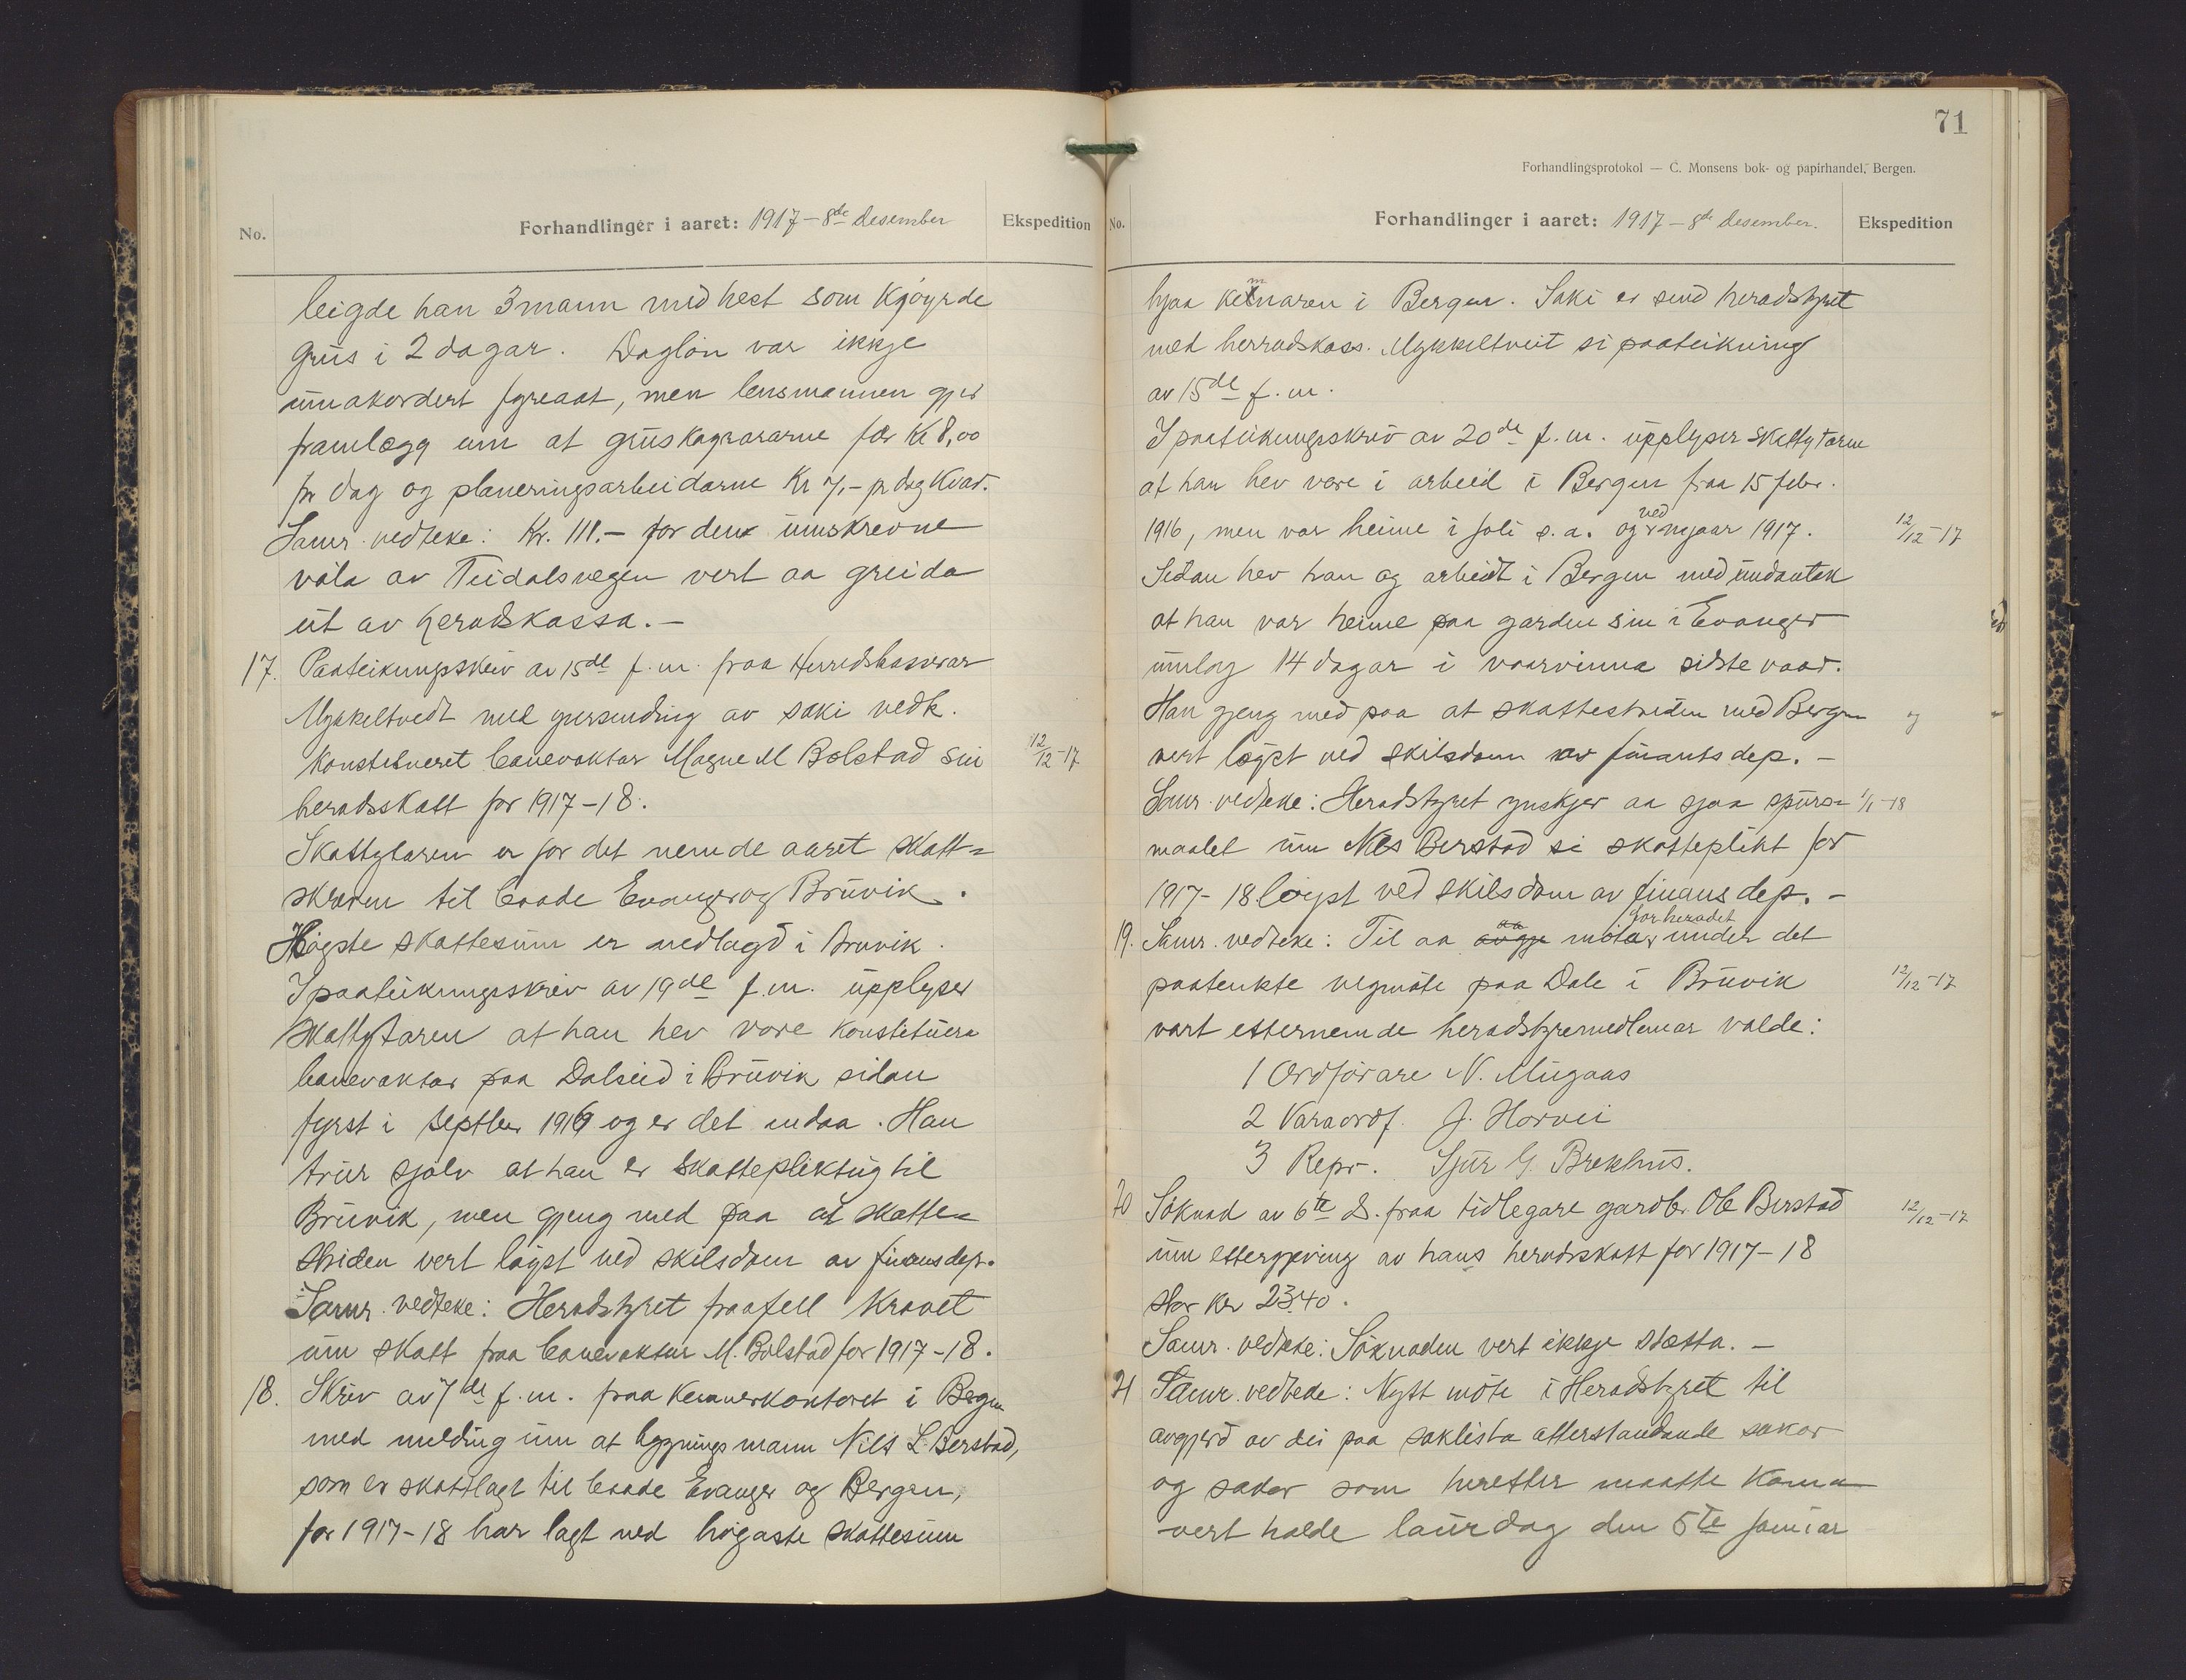 No.
Forhandlinger i aaret: 1917 - 8de Desember
Ekspedition
leigde han 3 mann med hest som kjøyrde
grus i 2 dagar. Dagløn var ikkje
umakordert fyreaat, men lensmannen gjer
framlegg um at gruskøyrararne fær Kr 8,00
pr dag og planeringsarbeidarne Kr 7,- pr dag kvar.
Samr. vedteke: Kr. 111.- for den umskrevne
vøla av Teidalsvegen vert aa greida
ut av heradskassa. -
17. Paateikningsskriv av 15de f.m. fraa Herredskasserar
Mykkeltvedt med yversending av saki vedk.
konstitueret banevaktar Magne M Bolstad sin
12/12-17
heradsskatt for 1917-18.
Skattytaren er for det nemde aaret skatt=
skreven til baade Evanger og Bruvik.
Høgste skattesum er nedlagd i Bruvik.
I paateikningsskriv av 19de f.m. upplyser
skattytaren at han hev vore konstituera
banevaktar paa Dalseid i Bruvik sidan
fyrst i septbr 1916 og er det endaa. Han
trur sjølv at han er skattepliktug til
Bruvik, men gjeng med paa at skatte=
striden vert løyst ved skilsdom av finansdep.
Samr. vedteke: Heradstyret fraafell kravet
um skatt fraa banevaktar M. Bolstad for 1917-18.
18. Skriv av 7de f.m. fraa Kemnerkontoret i Bergen
med melding um at bygningsmann Nils L. Berstad,
som er skattlagt til baade Evanger og Bergen,
for 1917-18 har lagt ned høgaste skattesum
71
Forhandlingsprotokol — C. Monsens bok- og papirhandel, Bergen.
No.
Forhandlinger i aaret: 1917 - 8de Desember.
Ekspedition
hjaa kemnaren i Bergen. Saki er send heradstyret
med herradskass. Mykkeltveit si paateikning
av 15de f.m.
I paateikningsskriv av 20de f.m. upplyser skattytaren
at han hev vore i arbeid i Bergen fraa 15 febr.
1916, men var heime i joli s.a. og ved nyaar 1917.
12/12-17
Sidan hev han og arbeidt i Bergen med undantak
at han var heime paa garden sin i Evanger
umlag 14 dagar i vaarvinna sidste vaar.
Han gjeng med paa at skattestriden med Bergen
vert løyst ved skilsdom av finantsdep. -
Samr. vedteke: Heradstyret ynskjer aa sjaa spurs=
1/1-18
maalet um Nils Berstad si skatteplikt for
1917-18 løyst ved skilsdom av finansdep. -
19. Samr. vedteke: Til aa møta for heradet under det
paatenkte vegmøte paa Dale i Bruvik
12/12-17
vart etternemde heradstyremedlemar valde:
1 Ordførare N. Mugaas
2 Varaordf. J. Horvei
3 Repr. Sjur G. Brekhus.
20 Søknad av 6te ds. fraa tidlegare gardbr. Ole Berstad
12/12-17
um ettergjeving av hans heradsskatt for 1917-18
stor kr 23.40.
Samr. vedteke: Søknaden vert ikkje støtta. -
21 Samr. vedteke: Nytt møte i Heradstyret til
avgjerd av dei paa saklista atterstandande saker
og saker som heretter maatte koma
vert halde laurdag den 5te januar